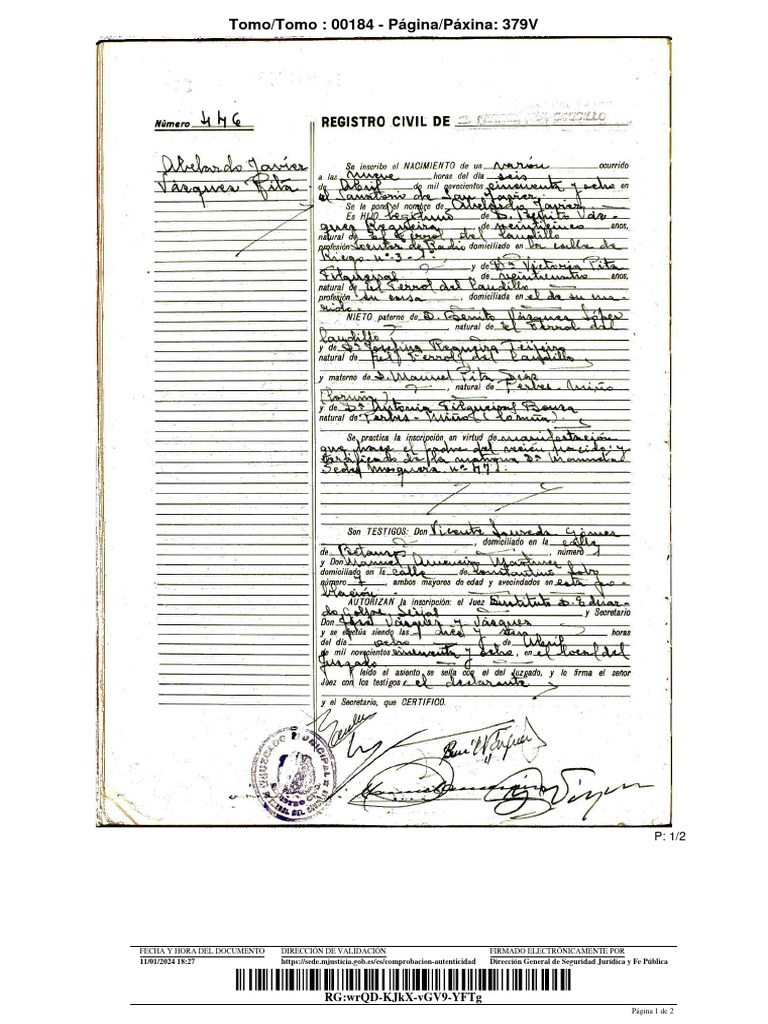 Tomo/Tomo : 00184 - Página/Páxina: 379V
Número 446
Abelardo Javier
Vázquez Pita
REGISTRO CIVIL DE EL FERROL DEL CAUDILLO
Se inscribe el NACIMIENTO de un varón ocurrido
a las nueve horas del día seis
de Abril de mil novecientos cincuenta y ocho en
el Sanatorio de San Javier.
Se le pone el nombre de Abelardo Javier,
Es HIJO legítimo de D. Benito Váz-
quez Regueira de veinticinco años,
natural de El Ferrol del Caudillo
profesión Locutor de Radio domiciliado en la calle de
Riego nº 3-1º
y de Dª Victoria Pita
Filgueiral de veinticuatro años,
natural de El Ferrol del Caudillo
profesión su casa, domiciliada en el de su ma-
rido.
NIETO paterno de D. Benito Vázquez López
natural de El Ferrol del
Caudillo
y de Dª Josefina Regueira Teijeiro
natural de El Ferrol del Caudillo
y materno de D. Manuel Pita Díaz
, natural de Perbes-Miño
(Coruña)
y de Dª Antonia Filgueiral Bouza
natural de Perbes-Miño (Coruña).
Se practica la inscripción en virtud de manifestación
que hace el padre del recién nacido y
certificado de la matrona Dª Manuela
Sedes Mosquera nº 471.
Son TESTIGOS: Don Vicente Loureda Gómez
, domiciliado en la calle
de Betanzos, número 1
y Don Manuel Martínez
domiciliado en la calle de Constantino Lobo
número 7 ambos mayores de edad y avecindados en esta po-
blación.
AUTORIZAN la inscripción: el Juez Sustituto D. Eduar-
do Golpe, y Secretario
Don José Vázquez y Vázquez
y se efectúa siendo las diez y horas
del día ocho de Abril
de mil novecientos cincuenta y ocho, en el local del
Juzgado
Y leído el asiento se sella con el del Juzgado, y lo firma el señor
Juez con los testigos y el declarante
y el Secretario, que CERTIFICO.
JUZGADO MUNICIPAL
REGISTRO CIVIL
EL FERROL DEL CAUDILLO
P: 1/2
FECHA Y HORA DEL DOCUMENTO DIRECCIÓN DE VALIDACIÓN FIRMADO ELECTRÓNICAMENTE POR
11/01/2024 18:27 https://sede.mjusticia.gob.es/es/comprobacion-autenticidad Dirección General de Seguridad Jurídica y Fe Pública
RG:wrQD-KJkX-vGV9-YFTg
Página 1 de 2